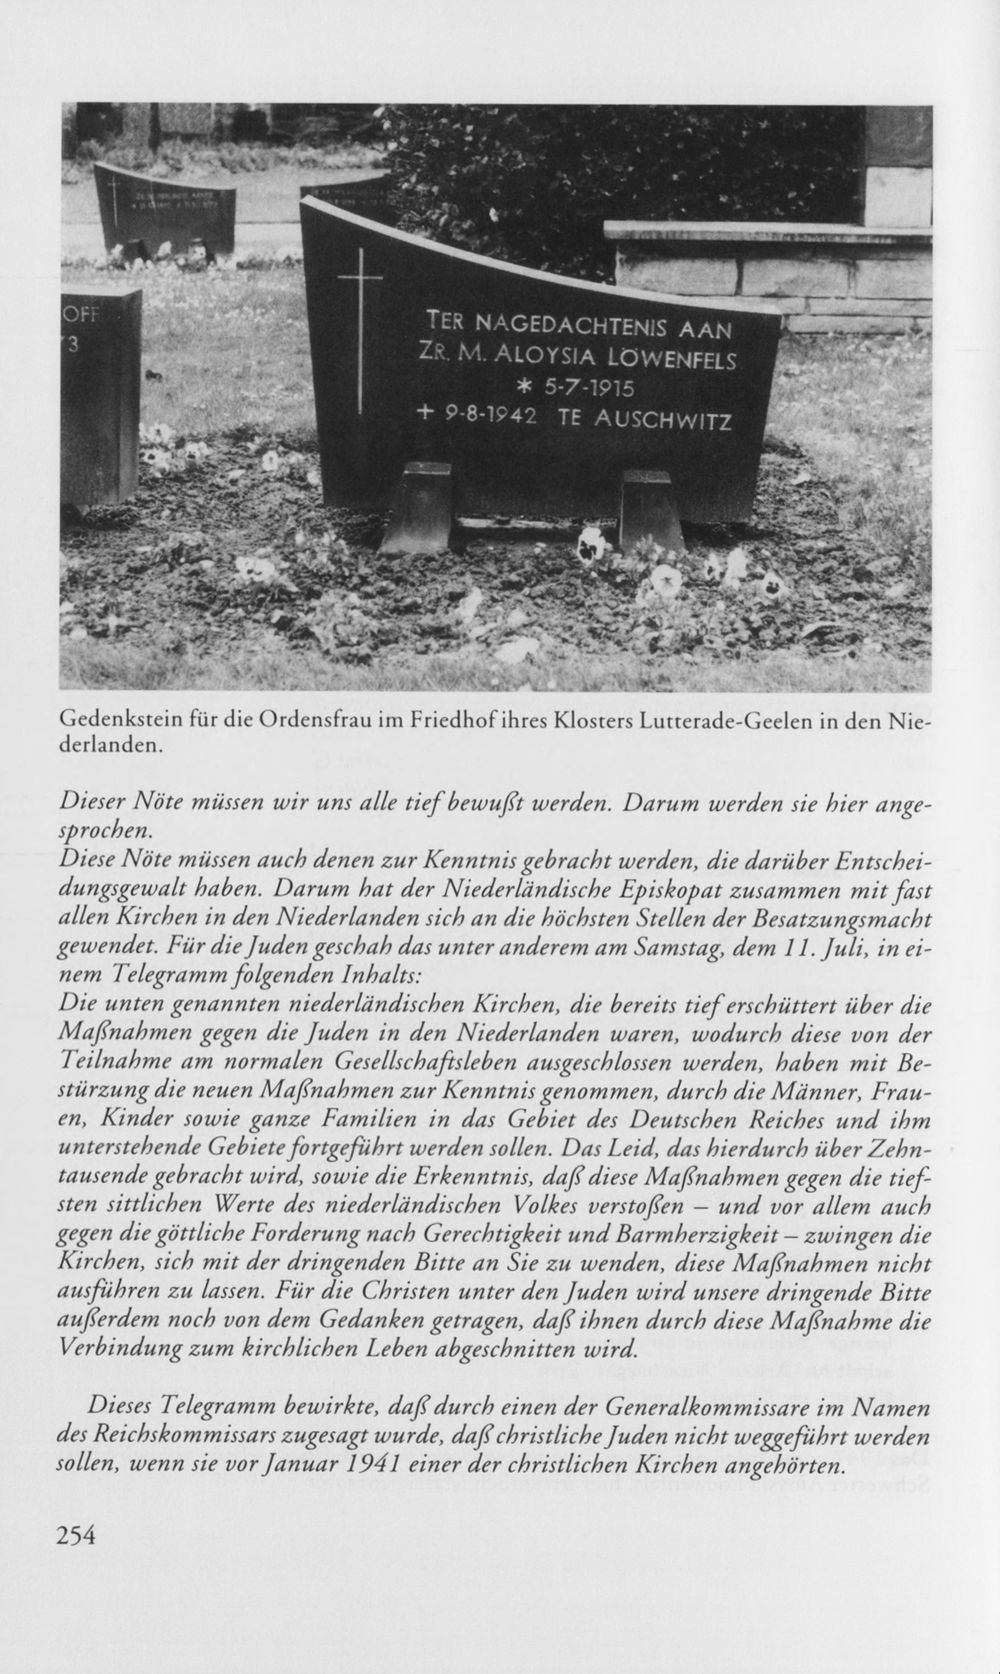 OFF
73
TER NAGEDACHTENIS AAN
ZR. M. ALOYSIA LÖWENFELS
* 5-7-1915
+ 9-8-1942 TE AUSCHWITZ
Gedenkstein für die Ordensfrau im Friedhof ihres Klosters Lutterade-Geelen in den Nie-
derlanden.
Dieser Nöte müssen wir uns alle tief bewußt werden. Darum werden sie hier ange-
sprochen.
Diese Nöte müssen auch denen zur Kenntnis gebracht werden, die darüber Entschei-
dungsgewalt haben. Darum hat der Niederländische Episkopat zusammen mit fast
allen Kirchen in den Niederlanden sich an die höchsten Stellen der Besatzungsmacht
gewendet. Für die Juden geschah das unter anderem am Samstag, dem 11. Juli, in ei-
nem Telegramm folgenden Inhalts:
Die unten genannten niederländischen Kirchen, die bereits tief erschüttert über die
Maßnahmen gegen die Juden in den Niederlanden waren, wodurch diese von der
Teilnahme am normalen Gesellschaftsleben ausgeschlossen werden, haben mit Be-
stürzung die neuen Maßnahmen zur Kenntnis genommen, durch die Männer, Frau-
en, Kinder sowie ganze Familien in das Gebiet des Deutschen Reiches und ihm
unterstehende Gebiete fortgeführt werden sollen. Das Leid, das hierdurch über Zehn-
tausende gebracht wird, sowie die Erkenntnis, daß diese Maßnahmen gegen die tief-
sten sittlichen Werte des niederländischen Volkes verstoßen – und vor allem auch
gegen die göttliche Forderung nach Gerechtigkeit und Barmherzigkeit – zwingen die
Kirchen, sich mit der dringenden Bitte an Sie zu wenden, diese Maßnahmen nicht
ausführen zu lassen. Für die Christen unter den Juden wird unsere dringende Bitte
außerdem noch von dem Gedanken getragen, daß ihnen durch diese Maßnahme die
Verbindung zum kirchlichen Leben abgeschnitten wird.
Dieses Telegramm bewirkte, daß durch einen der Generalkommissare im Namen
des Reichskommissars zugesagt wurde, daß christliche Juden nicht weggeführt werden
sollen, wenn sie vor Januar 1941 einer der christlichen Kirchen angehörten.
254